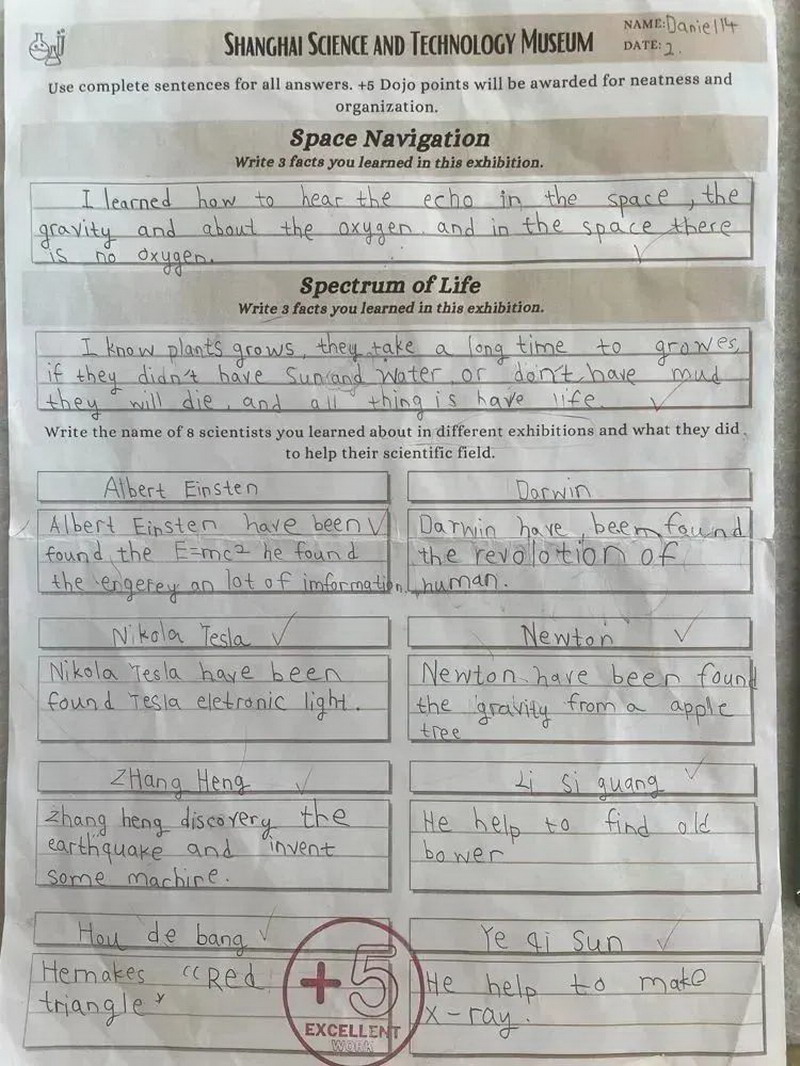 SHANGHAI SCIENCE AND TECHNOLOGY MUSEUM
NAME: Daniel 14
DATE: 2.
Use complete sentences for all answers. +5 Dojo points will be awarded for neatness and
organization.
Space Navigation
Write 3 facts you learned in this exhibition.
I learned how to hear the echo in the space, the
gravity and about the oxygen. and in the space there
is no oxygen.
Spectrum of Life
Write 3 facts you learned in this exhibition.
I know plants grows, they take a long time to growes,
if they didn't have Sun and Water or don't have mud
they will die, and all thing is have life.
Write the name of 8 scientists you learned about in different exhibitions and what they did
to help their scientific field.
Albert Einsten
Albert Einsten have been
found the E=mc² he found
the engerey an lot of imformation.
Darwin
Darwin have beem found
the revolotion of
human.
Nikola Tesla
Nikola Tesla have been
found Tesla eletronic light.
Newton
Newton have been found
the gravity from a apple
tree
ZHang Heng
Zhang heng discovery the
earthquake and invent
some machine.
Li si guang
He help to find old
bower
Hou de bang
He makes "Red
triangle"
Ye qi Sun
He help to make
x-ray.
+5
EXCELLENT
WORK